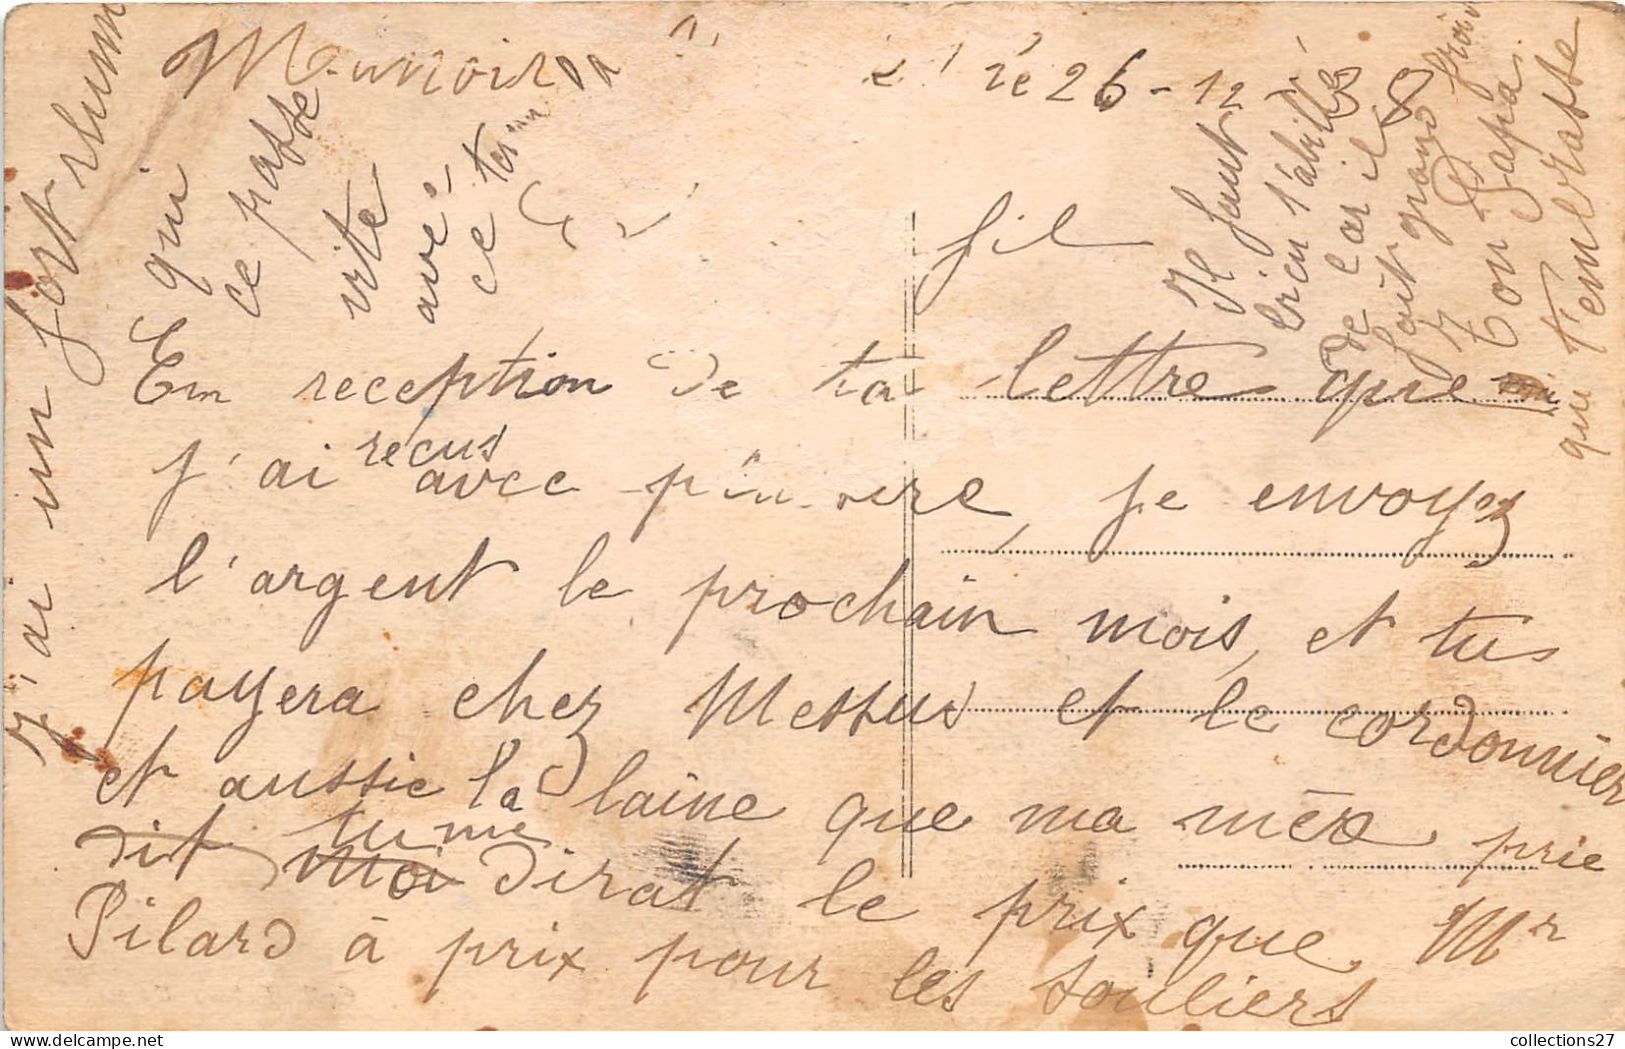 26-12
fil
En reception de ta lettre que
j'ai recus avec je envoyez
l'argent le prochain mois, et tu
payera chez et le cordonnier
et aussie la laine que ma mère prie
dit moi tu me dirat le prix que Mr
Pilard à prix pour les souliers
j'ai un fort rhum
qui
ce passe
vite
avec
ce
Il faut
bien t'abillé
de car il
fait grand froid
Ton Papa
qui t'embrasse
collections27